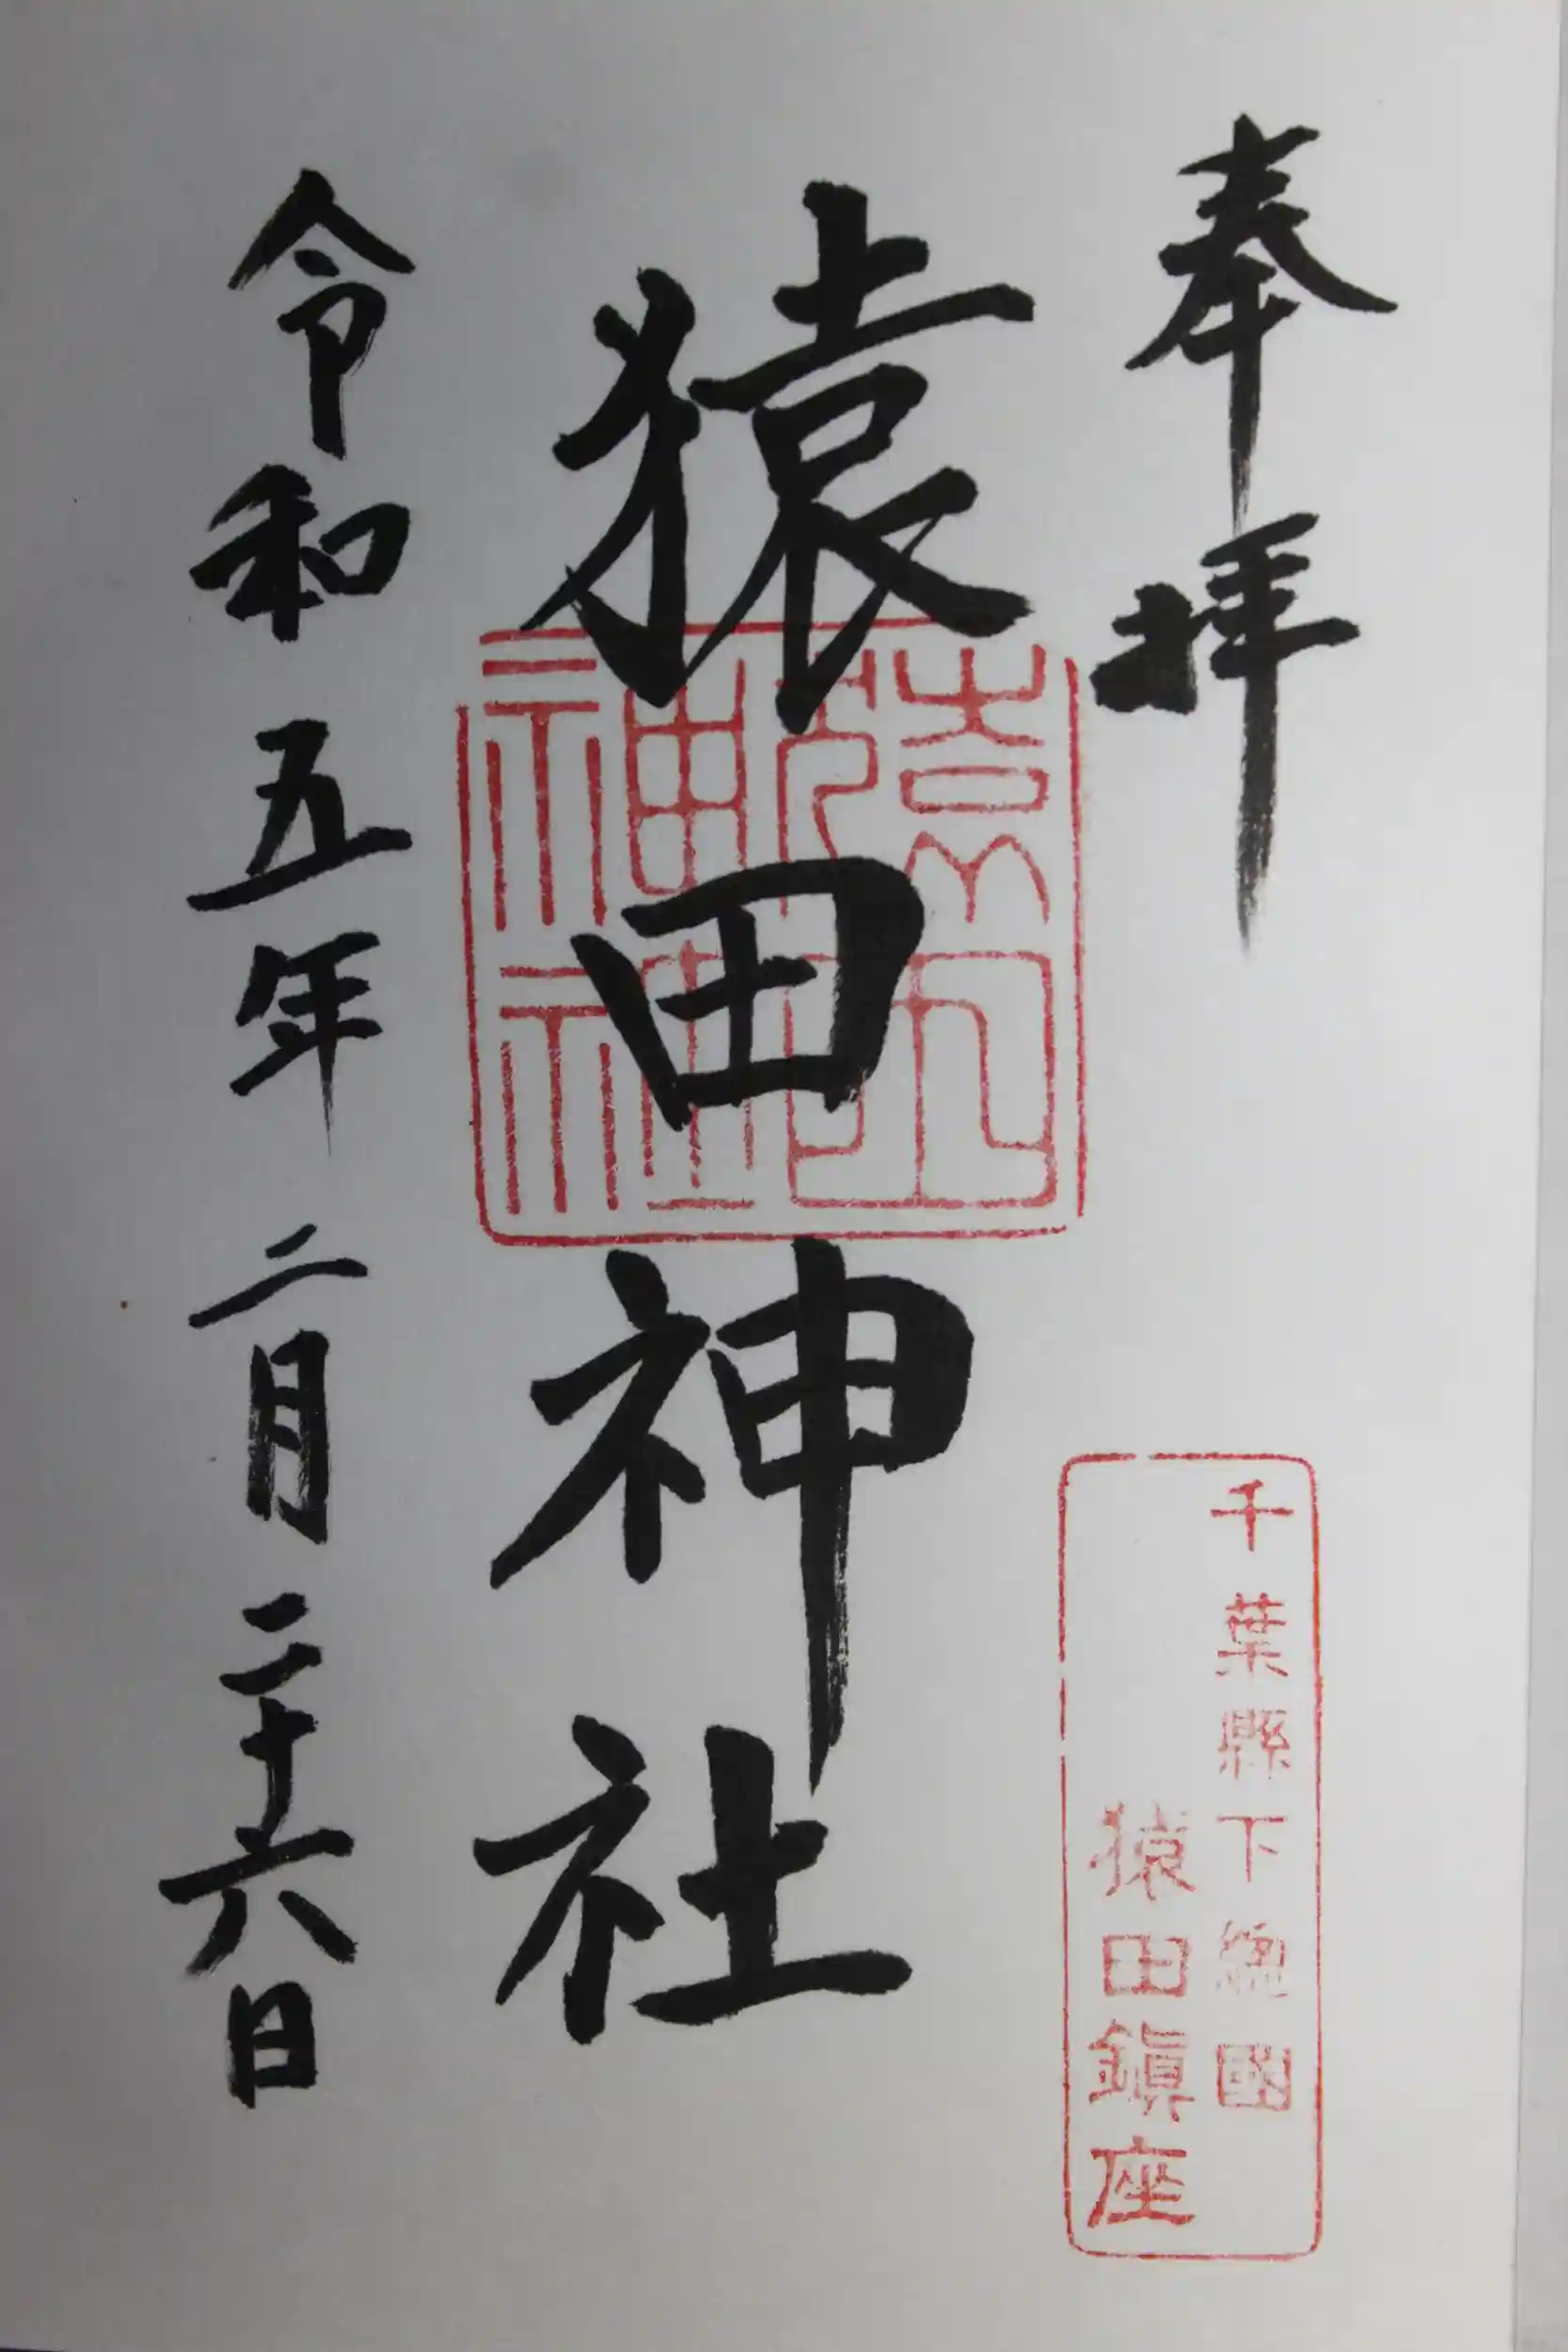 奉拝
千葉縣下總國
猿田鎭座
猿田神社
猿田神社
令和五年二月二十六日